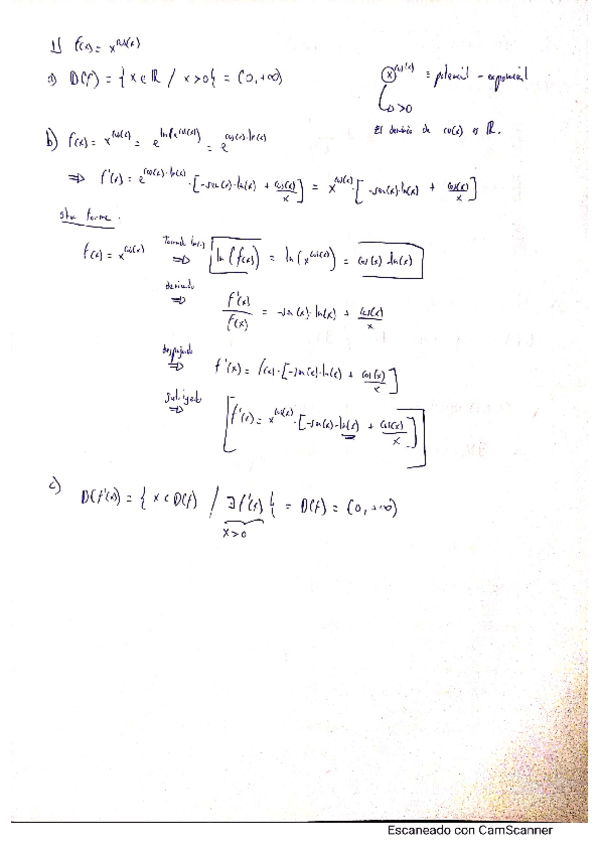 1) f(x) = x^cos(x)
a) D(f) = { x ∈ ℝ / x > 0 } = (0, +∞)
x^cos(x) = potencial - exponencial
> 0
El dominio de cos(x) es ℝ.
b) f(x) = x^cos(x) = e^ln(x^cos(x)) = e^cos(x)·ln(x)
⇒ f'(x) = e^cos(x)·ln(x) · [-sen(x)·ln(x) + cos(x)/x] = x^cos(x) · [-sen(x)·ln(x) + cos(x)/x]
otra forma.
f(x) = x^cos(x) Tomando ⇒ ln(f(x)) = ln(x^cos(x)) = cos(x) ln(x)
derivando ⇒ f'(x)/f(x) = -sen(x)·ln(x) + cos(x)/x
despejando ⇒ f'(x) = f(x) · [-sen(x)·ln(x) + cos(x)/x]
⇒ f'(x) = x^cos(x) · [-sen(x)·ln(x) + cos(x)/x]
c) D(f'(x)) = { x ∈ D(f) / ∃ f'(x) } = D(f) = (0, +∞)
x > 0
Escaneado con CamScanner